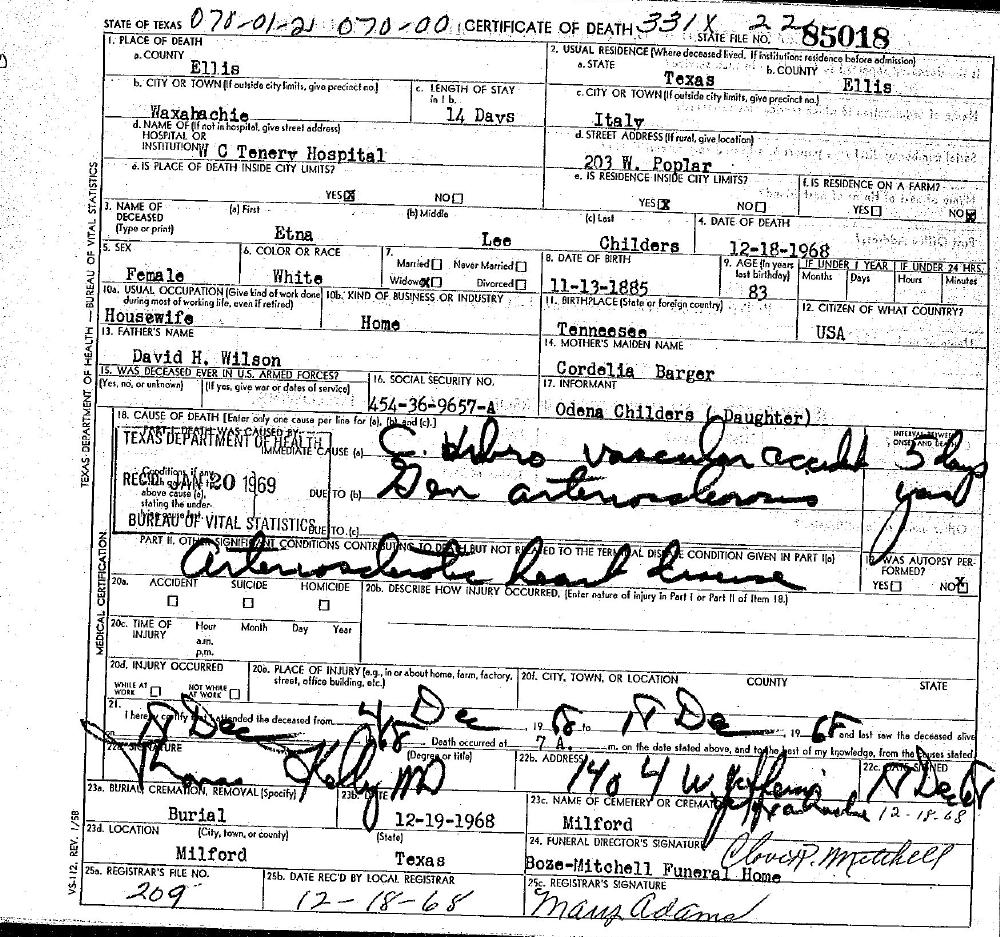 STATE OF TEXAS 078-01-21 070-00 CERTIFICATE OF DEATH 331X 22 STATE FILE NO. 85018
1. PLACE OF DEATH
a. COUNTY
Ellis
2. USUAL RESIDENCE (Where deceased lived. If institution: residence before admission)
a. STATE
Texas
b. COUNTY
Ellis
b. CITY OR TOWN (If outside city limits, give precinct no.)
Waxahachie
c. LENGTH OF STAY in 1 b.
14 Days
c. CITY OR TOWN (If outside city limits, give precinct no.)
Italy
d. NAME OF (If not in hospital, give street address)
HOSPITAL OR
INSTITUTION W C Tenery Hospital
d. STREET ADDRESS (If rural, give location)
203 W. Poplar
e. IS PLACE OF DEATH INSIDE CITY LIMITS?
YES NO
e. IS RESIDENCE INSIDE CITY LIMITS?
YES NO
f. IS RESIDENCE ON A FARM?
YES NO
3. NAME OF DECEASED (Type or print)
(a) First
Etna
(b) Middle
Lee
(c) Last
Childers
4. DATE OF DEATH
12-18-1968
5. SEX
Female
6. COLOR OR RACE
White
7.
Married Never Married
Widowed Divorced
8. DATE OF BIRTH
11-13-1885
9. AGE (In years last birthday)
83
IF UNDER 1 YEAR
Months Days
IF UNDER 24 HRS.
Hours Minutes
10a. USUAL OCCUPATION (Give kind of work done during most of working life, even if retired)
Housewife
10b. KIND OF BUSINESS OR INDUSTRY
Home
11. BIRTHPLACE (State or foreign country)
Tennesee
12. CITIZEN OF WHAT COUNTRY?
USA
13. FATHER'S NAME
David H. Wilson
14. MOTHER'S MAIDEN NAME
Cordelia Barger
15. WAS DECEASED EVER IN U.S. ARMED FORCES?
(Yes, no, or unknown) (If yes, give war or dates of service)
16. SOCIAL SECURITY NO.
454-36-9657-A
17. INFORMANT
Odena Childers ( Daughter)
18. CAUSE OF DEATH [Enter only one cause per line for (a), (b), and (c).]
PART I. DEATH WAS CAUSED BY:
IMMEDIATE CAUSE (a) vascular accident
INTERVAL BETWEEN ONSET AND DEATH
TEXAS DEPARTMENT OF HEALTH
REC'D JAN 20 1969
BUREAU OF VITAL STATISTICS
Conditions, if any,
above cause (a),
stating the under-
DUE TO (b) Gen arteriosclerosis
DUE TO (c)
PART II. OTHER SIGNIFICANT CONDITIONS CONTRIBUTING TO DEATH BUT NOT RELATED TO THE TERMINAL DISEASE CONDITION GIVEN IN PART I(a)
Arteriosclerotic heart disease
19. WAS AUTOPSY PERFORMED?
YES NO
20a. ACCIDENT SUICIDE HOMICIDE
20b. DESCRIBE HOW INJURY OCCURRED. (Enter nature of injury in Part I or Part II of Item 18.)
20c. TIME OF INJURY
Hour Month Day Year
a.m.
p.m.
20d. INJURY OCCURRED
WHILE AT WORK NOT WHILE AT WORK
20e. PLACE OF INJURY (e.g., in or about home, farm, factory, street, office building, etc.)
20f. CITY, TOWN, OR LOCATION COUNTY STATE
21. I hereby certify that I attended the deceased from 4 Dec 19 68 to 18 Dec 19 68 and last saw the deceased alive
18 Dec 68 Death occurred at 7 A. m. on the date stated above, and to the best of my knowledge, from the causes stated
22a. SIGNATURE (Degree or title)
Thomas Kelly MD
22b. ADDRESS
1404 W Jefferson
Waxahachie
22c. DATE SIGNED
18 Dec 68
12-18-68
23a. BURIAL, CREMATION, REMOVAL (Specify)
Burial
23b. DATE
12-19-1968
23c. NAME OF CEMETERY OR CREMATORY
Milford
23d. LOCATION (City, town, or county) (State)
Milford Texas
24. FUNERAL DIRECTOR'S SIGNATURE
Clovis R. Mitchell
Boze-Mitchell Funeral Home
25a. REGISTRAR'S FILE NO.
209
25b. DATE REC'D BY LOCAL REGISTRAR
12-18-68
25c. REGISTRAR'S SIGNATURE
Mary Adams
TEXAS DEPARTMENT OF HEALTH — BUREAU OF VITAL STATISTICS
MEDICAL CERTIFICATION
VS-112, REV. 1/58